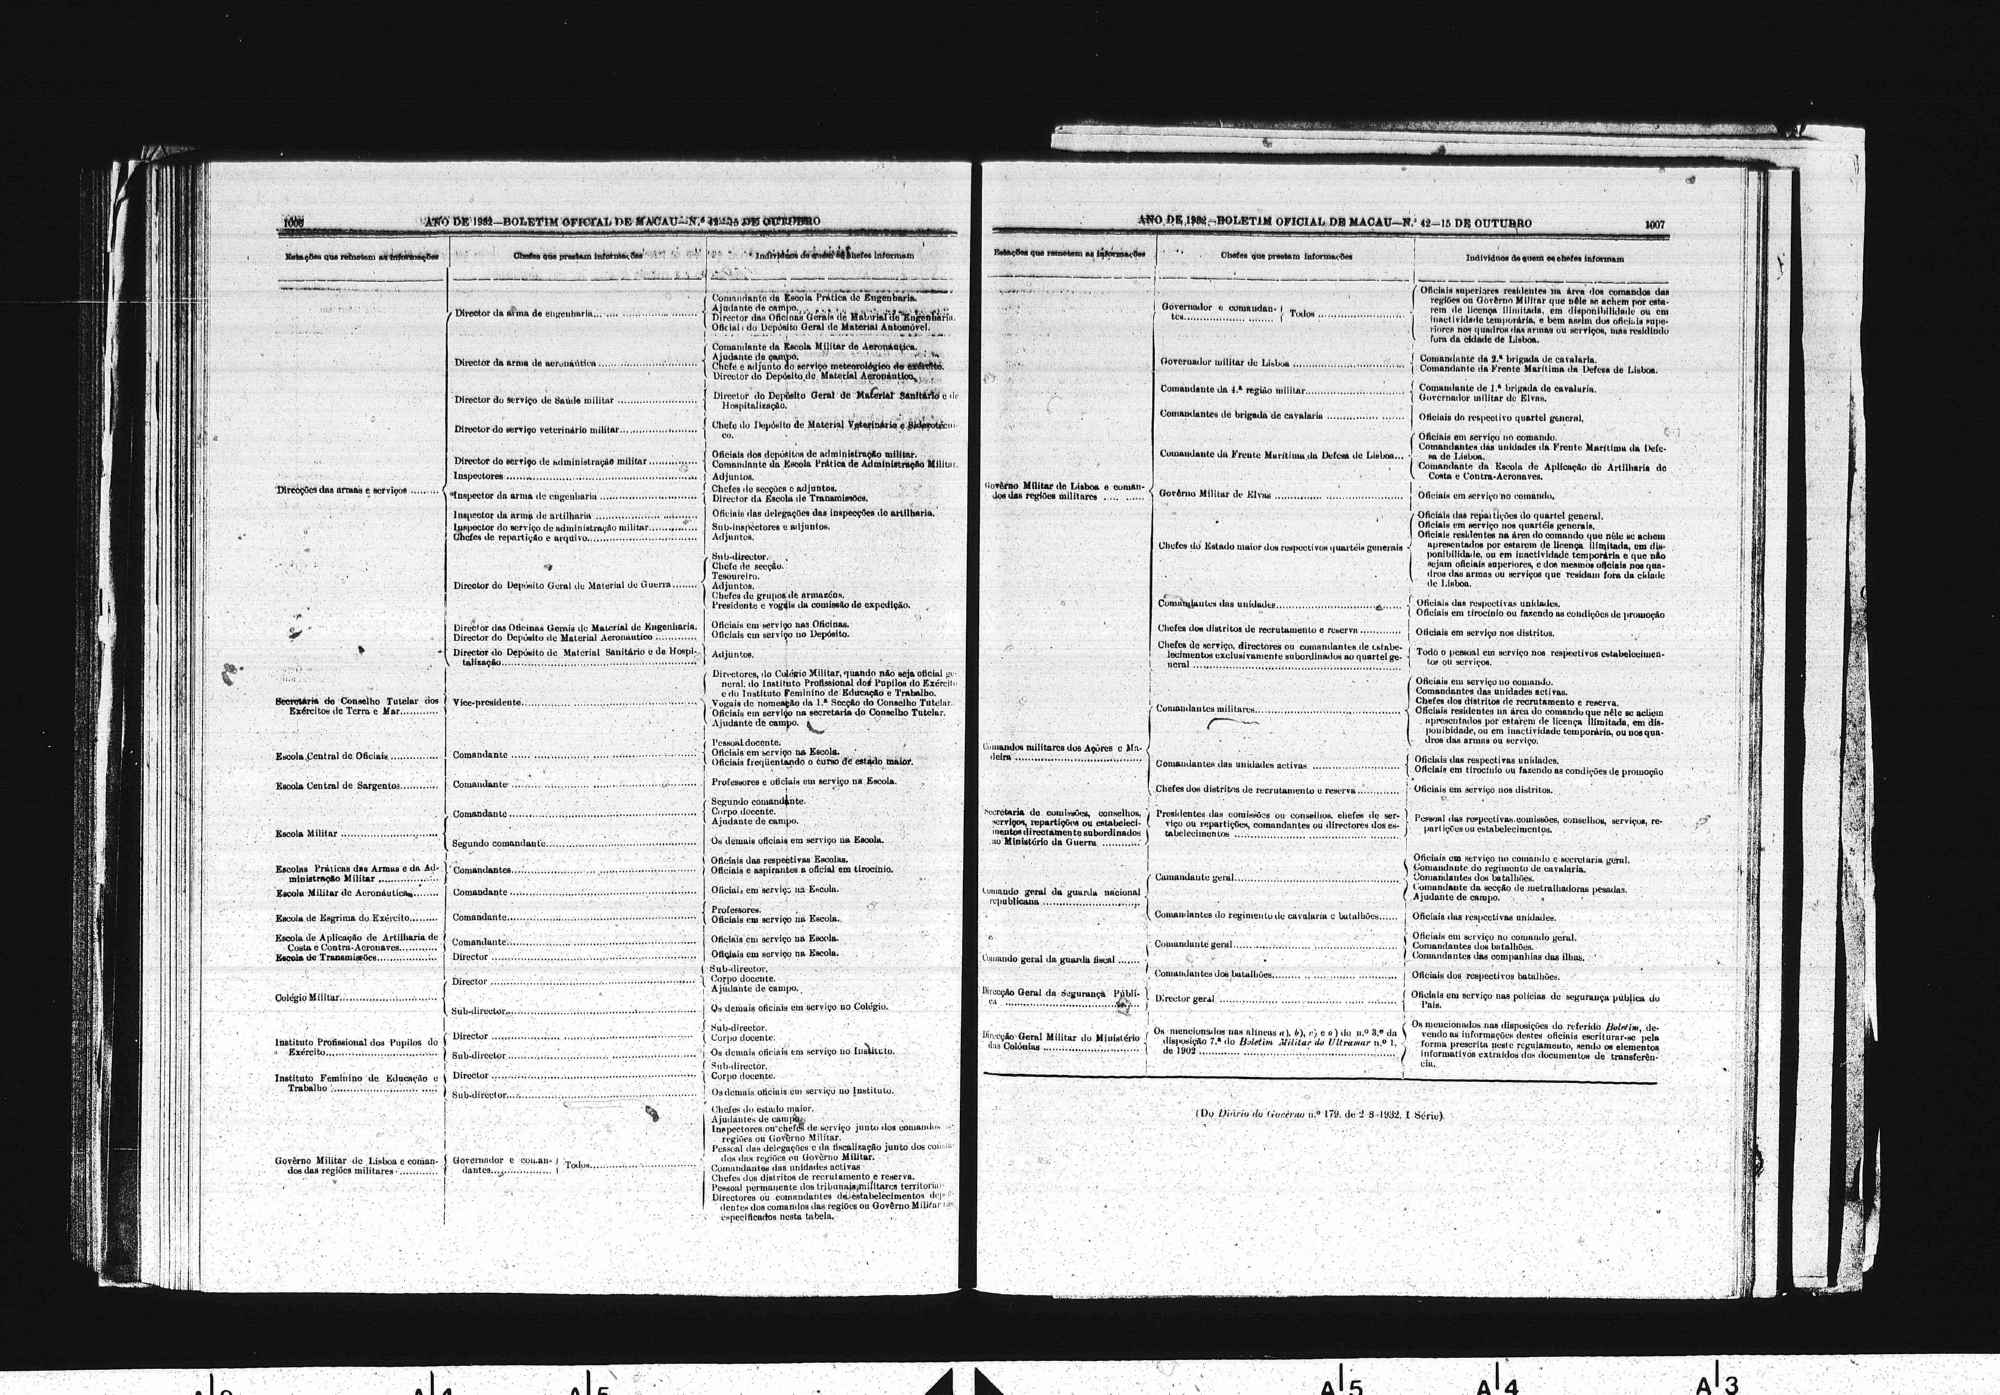 1006 ANO DE 1932—BOLETIM OFICIAL DE MACAU—N.º 42—15 DE OUTUBRO
Estações que remetem as informações
Chefes que prestam informações
Indivíduos de quem os chefes informam
Direcções das armas e serviços
Director da arma de engenharia
Comandante da Escola Prática de Engenharia.
Ajudante de campo.
Director das Oficinas Gerais de Material de Engenharia.
Oficiais do Depósito Geral de Material Automóvel.
Director da arma de aeronáutica
Comandante da Escola Militar de Aeronáutica.
Ajudante de campo.
Chefe e adjunto do serviço meteorológico do exército.
Director do Depósito de Material Aeronáutico.
Director do serviço de Saúde militar
Director do Depósito Geral de Material Sanitário e de
Hospitalização.
Director do serviço veterinário militar
Chefe do Depósito de Material Veterinário e Siderotécni-
co.
Director do serviço de administração militar
Oficiais dos depósitos de administração militar.
Comandante da Escola Prática de Administração Militar.
Inspectores
Adjuntos.
Inspector da arma de engenharia
Chefes de secções e adjuntos.
Director da Escola de Transmissões.
Inspector da arma de artilharia
Oficiais das delegações das inspecções de artilharia.
Inspector do serviço de administração militar
Sub-inspectores e adjuntos.
Chefes de repartição e arquivo
Adjuntos.
Director do Depósito Geral de Material de Guerra
Sub-director.
Chefe de secção.
Tesoureiro.
Adjuntos.
Chefes de grupos de armazéns.
Presidente e vogais da comissão de expedição.
Director das Oficinas Gerais de Material de Engenharia.
Oficiais em serviço nas Oficinas.
Director do Depósito de Material Aeronáutico
Oficiais em serviço no Depósito.
Director do Depósito de Material Sanitário e de Hospi-
talização
Adjuntos.
Secretaria do Conselho Tutelar dos
Exércitos de Terra e Mar
Vice-presidente
Directores, do Colégio Militar, quando não seja oficial ge-
neral, do Instituto Profissional dos Pupilos do Exército
e do Instituto Feminino de Educação e Trabalho.
Vogais de nomeação da 1.ª Secção do Conselho Tutelar.
Oficiais em serviço na secretaria do Conselho Tutelar.
Ajudante de campo.
Escola Central de Oficiais
Comandante
Pessoal docente.
Oficiais em serviço na Escola.
Oficiais freqüentando o curso de estado maior.
Escola Central de Sargentos
Comandante
Professores e oficiais em serviço na Escola.
Escola Militar
Comandante
Segundo comandante.
Corpo docente.
Ajudante de campo.
Segundo comandante
Os demais oficiais em serviço na Escola.
Escolas Práticas das Armas e da Ad-
ministração Militar
Comandantes
Oficiais das respectivas Escolas.
Oficiais e aspirantes a oficial em tirocínio.
Escola Militar de Aeronáutica
Comandante
Oficiais em serviço na Escola.
Escola de Esgrima do Exército
Comandante
Professores.
Oficiais em serviço na Escola.
Escola de Aplicação de Artilharia de
Costa e Contra-Aeronaves
Comandante
Oficiais em serviço na Escola.
Escola de Transmissões
Director
Oficiais em serviço na Escola.
Colégio Militar
Director
Sub-director.
Corpo docente.
Ajudante de campo.
Sub-director
Os demais oficiais em serviço no Colégio.
Instituto Profissional dos Pupilos do
Exército
Director
Sub-director.
Corpo docente.
Sub-director
Os demais oficiais em serviço no Instituto.
Instituto Feminino de Educação e
Trabalho
Director
Sub-director.
Corpo docente.
Sub-director
Os demais oficiais em serviço no Instituto.
Govêrno Militar de Lisboa e coman-
dos das regiões militares
Governador e coman-
dantes
Todos
Chefes do estado maior.
Ajudantes de campo.
Inspectores ou chefes de serviço junto dos comandos
regiões ou Govêrno Militar.
Pessoal das delegações e da fiscalização junto dos coman-
dos das regiões ou Govêrno Militar.
Comandantes das unidades activas
Chefes dos distritos de recrutamento e reserva.
Pessoal permanente dos tribunais militares territoriais
Directores ou comandantes de estabelecimentos depen-
dentes dos comandos das regiões ou Govêrno Militar
especificados nesta tabela.
ANO DE 1932—BOLETIM OFICIAL DE MACAU—N.º 42—15 DE OUTUBRO 1007
Estações que remetem as informações
Chefes que prestam informações
Indivíduos de quem os chefes informam
Govêrno Militar de Lisboa e coman-
dos das regiões militares
Governador e comandan-
tes
Todos
Oficiais superiores residentes na área dos comandos das
regiões ou Govêrno Militar que nêle se achem por esta-
rem de licença ilimitada, em disponibilidade ou em
inactividade temporária, e bem assim dos oficiais supe-
riores nos quadros das armas ou serviços, mas residindo
fora da cidade de Lisboa.
Governador militar de Lisboa
Comandante da 2.ª brigada de cavalaria.
Comandante da Frente Marítima da Defesa de Lisboa.
Comandante da 4.ª região militar
Comandante de 1.ª brigada de cavalaria.
Governador militar de Elvas.
Comandantes de brigada de cavalaria
Oficiais do respectivo quartel general.
Comandante da Frente Marítima da Defesa de Lisboa
Oficiais em serviço no comando.
Comandantes das unidades da Frente Marítima da Defe-
sa de Lisboa.
Comandante da Escola de Aplicação de Artilharia de
Costa e Contra-Aeronaves.
Govêrno Militar de Elvas
Oficiais em serviço no comando.
Chefes do Estado maior dos respectivos quartéis generais
Oficiais das repartições do quartel general.
Oficiais em serviço nos quartéis generais.
Oficiais residentes na área do comando que nêle se achem
apresentados por estarem de licença ilimitada, em dis-
ponibilidade, ou em inactividade temporária e que não
sejam oficiais superiores, e dos mesmos oficiais nos qua-
dros das armas ou serviços que residam fora da cidade
de Lisboa.
Comandantes das unidades
Oficiais das respectivas unidades.
Oficiais em tirocínio ou fazendo as condições de promoção
Chefes dos distritos de recrutamento e reserva
Oficiais em serviço nos distritos.
Chefes de serviço, directores ou comandantes de estabe-
lecimentos exclusivamente subordinados ao quartel ge-
neral
Todo o pessoal em serviço nos respectivos estabelecimen-
tos ou serviços.
Comandos militares dos Açôres e Ma-
deira
Comandantes militares
Oficiais em serviço no comando.
Comandantes das unidades activas.
Chefes dos distritos de recrutamento e reserva.
Oficiais residentes na área do comando que nêle se achem
apresentados por estarem de licença ilimitada, em dis-
ponibidade, ou em inactividade temporária, ou nos qua-
dros das armas ou serviço.
Comandantes das unidades activas
Oficiais das respectivas unidades.
Oficiais em tirocínio ou fazendo as condições de promoção
Chefes dos distritos de recrutamento e reserva
Oficiais em serviço nos distritos.
Secretaria de comissões, conselhos,
serviços, repartições ou estabeleci-
mentos directamente subordinados
ao Ministério da Guerra
Presidentes das comissões ou conselhos, chefes de ser-
viço ou repartições, comandantes ou directores dos es-
tabelecimentos
Pessoal das respectivas comissões, conselhos, serviços, re-
partições ou estabelecimentos.
Comando geral da guarda nacional
republicana
Comandante geral
Oficiais em serviço no comando e secretaria geral.
Comandante do regimento de cavalaria.
Comandantes dos batalhões.
Comandante da secção de metralhadoras pesadas.
Ajudante de campo.
Comandantes do regimento de cavalaria e batalhões
Oficiais das respectivas unidades.
Comando geral da guarda fiscal
Comandante geral
Oficiais em serviço no comando geral.
Comandantes dos batalhões.
Comandantes das companhias das ilhas.
Comandantes dos batalhões
Oficiais dos respectivos batalhões.
Direcção Geral da Segurança Públi-
ca
Director geral
Oficiais em serviço nas polícias de segurança pública do
País.
Direcção Geral Militar do Ministério
das Colónias
Os mencionados nas alíneas a), b), c) e o) do n.º 3.º da
disposição 7.ª do Boletim Militar do Ultramar n.º 1,
de 1902
Os mencionados nas disposições do referido Boletim, de-
vendo as informações destes oficiais escriturar-se pela
forma prescrita neste regulamento, sendo os elementos
informativos extraídos dos documentos de transferên-
cia.
(Do Diário do Govêrno n.º 179, de 2-8-1932, I Série).
A|5 A|4 A|3